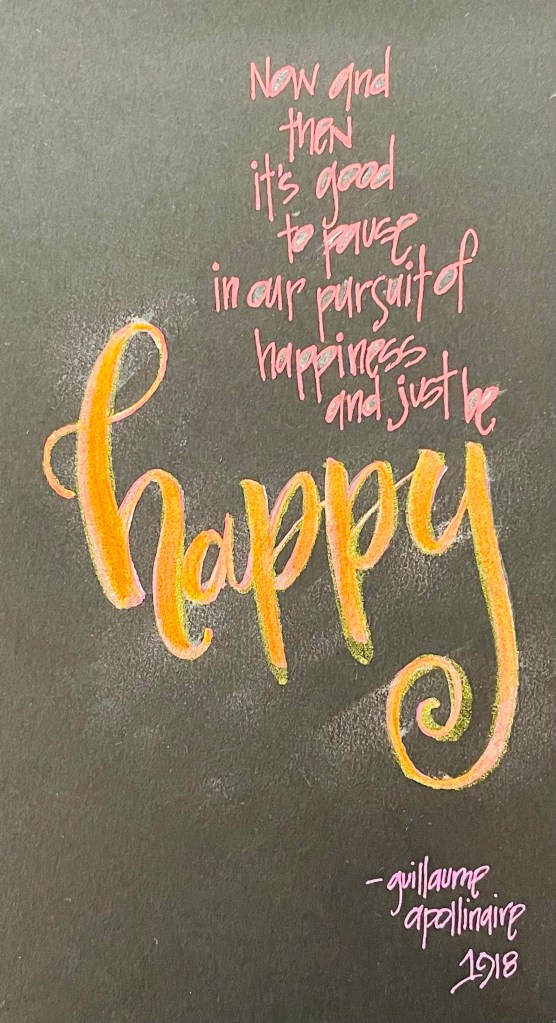 Now and
then
it's good
to pause
in our pursuit of
happiness
and just be
happy
- guillaume
apollinaire
1918